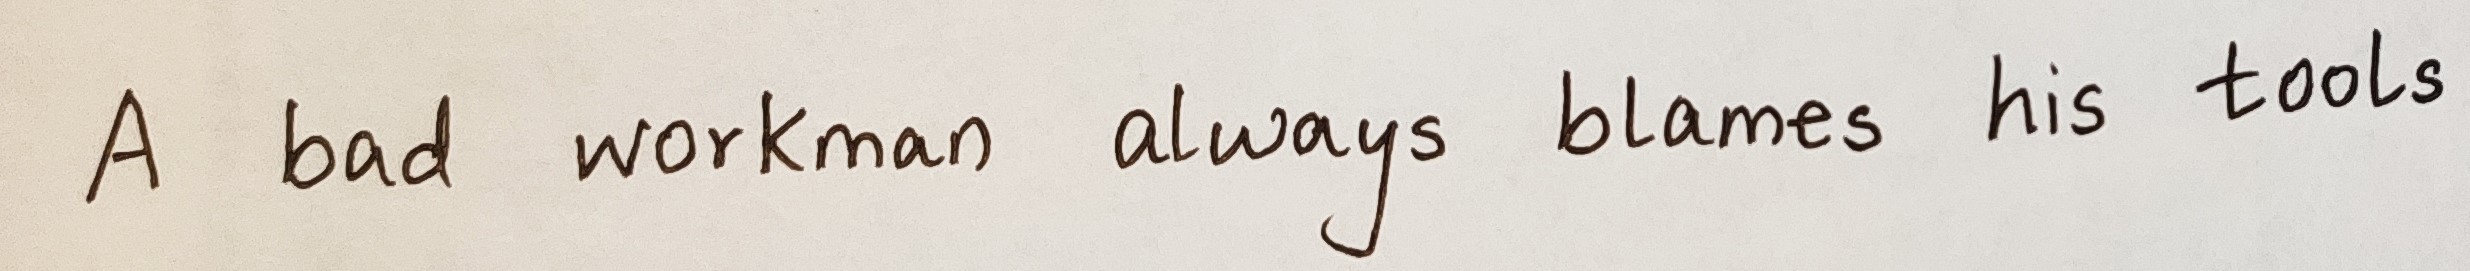 A bad workman always blames his tools